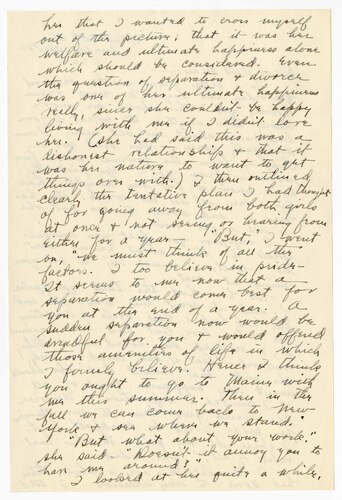 her that I wanted to cross myself
out of the picture; that it was her
welfare and ultimate happiness alone
which should be considered. Even
the question of separation & divorce
was one of her ultimate happiness
really, since she couldn't be happy
living with me if I didn't love
her. (She had said this was a
dishonest relationship & that it
was her nature to want to get
things over with.) I then outlined
clearly the tentative plan I had thought
of for going away from both girls
at once & not seeing or hearing from
either for a year— "But," I went
on, "we must think of all the
factors. I too believe in pride—
It seems to me now that a
separation would come best for
you at the end of a year. A
sudden separation now would be
dreadful for you & would offend
those amenities of life in which
I firmly believe. Hence I think
you ought to go to Maine with
me this summer. Then in the
fall we can come back to New
York & see where we stand."
"But what about your work."
she said— "Doesn't it annoy you to
have me around?"
I looked at her quite a while,